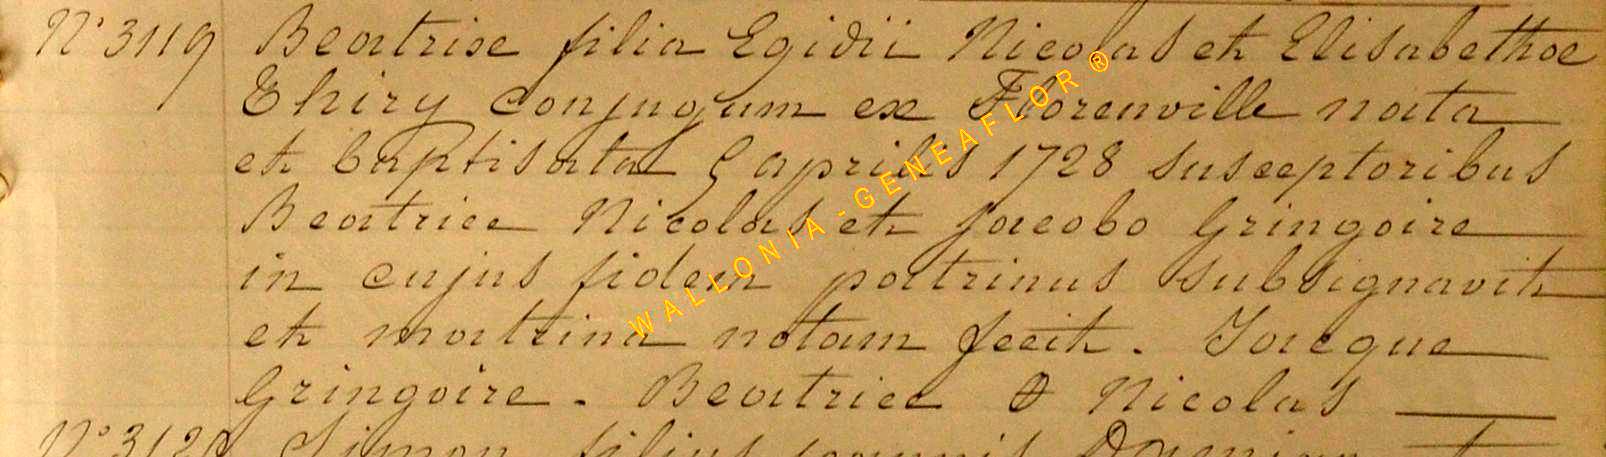 N° 3119 Beatrix filia Egidii Nicolas et Elisabethae
Thiry conjugum ex Florenville nata
et baptisata 9 aprilis 1728 susceptoribus
Beatrice Nicolas et Jacobo Gringoire
in cujus fidem patrinus subsignavit
et matrina notam fecit. Jacque
Gringoire. Beatrice Nicolas
N° 3120 Simon filius joannis
WALLONIA-GENEAFLOR®